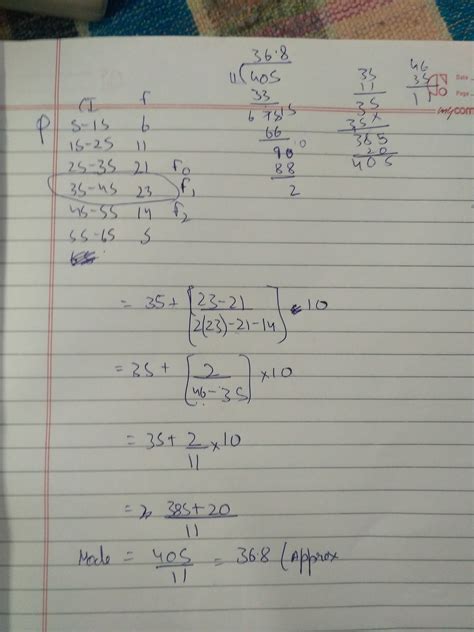 CI f
5-15 6
15-25 11
25-35 21 f0
35-45 23 f1
45-55 14 f2
55-65 5
36.8
11 405
33
66
88
2
35
11
35
35×
385
20
405
46
35
11
= 35 + [23-21 / 2(23)-21-14] 10
= 35 + [2 / 46-35] ×10
= 35 + 2/11 ×10
= 385+20 / 11
Mode = 405/11 = 36.8 (Approx